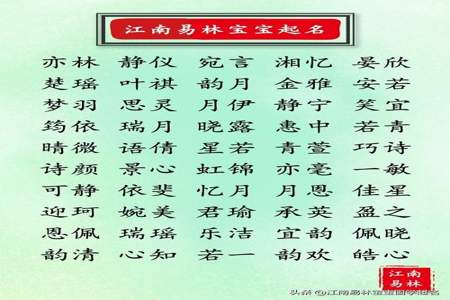 江南易林宝宝起名
亦林 静仪 宛言 湘忆 晏欣
楚瑶 叶祺 韵月 金雅 安若
梦羽 思灵 月伊 静宁 笑宜
筠依 瑞月 晓露 惠中 若青
晴微 语倩 星若 青萱 巧诗
诗颜 景心 虹锦 亦毫 一敏
可静 依斐 忆月 月恩 佳星
迎珂 婉美 君瑜 承英 盈之
恩佩 瑞瑶 乐洁 宜韵 佩晓
韵清 心知 若一 韵欢 皓心
江南
易林
头条 @江南易林宝宝